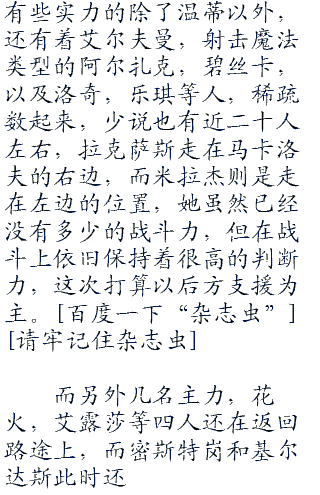 有些实力的除了温蒂以外，
还有着艾尔夫曼，射击魔法
类型的阿尔扎克，碧丝卡，
以及洛奇，乐琪等人，稀疏
数起来，少说也有近二十人
左右，拉克萨斯走在马卡洛
夫的右边，而米拉杰则是走
在左边的位置，她虽然已经
没有多少的战斗力，但在战
斗上依旧保持着很高的判断
力，这次打算以后方支援为
主。[百度一下“杂志虫”]
[请牢记住杂志虫]
而另外几名主力，花
火，艾露莎等四人还在返回
路途上，而密斯特岗和基尔
达斯此时还